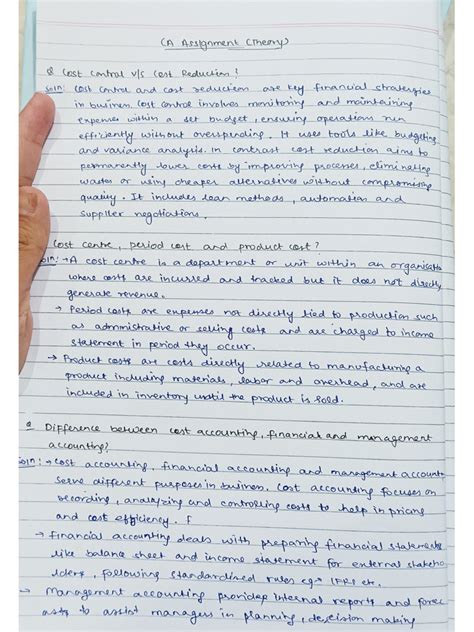 CA Assignment (Theory)
Q Cost Control v/s Cost Reduction!
Soln: Cost control and cost reduction are key financial strategies
in business. Cost control involves monitoring and maintaining
expenses within a set budget, ensuring operations run
efficiently without overspending. It uses tools like budgeting
and variance analysis. In contrast cost reduction aims to
permanently lower costs by improving processes, eliminating
wastes or using cheaper alternatives without compromising
quality. It includes lean methods, automation and
supplier negotiations.
Cost centre, period cost and product cost?
Soln: → A cost centre is a department or unit within an organisatio
where costs are incurred and tracked but it does not directly
generate revenue.
→ Period costs are expenses not directly tied to production such
as administrative or selling costs and are charged to income
statement in period they occur.
→ Product costs are costs directly related to manufacturing a
product including materials, labor and overhead, and are
included in inventory until the product is sold.
Q Difference between cost accounting, financial and management
accounting?
Soln: → Cost accounting, financial accounting and management account
serve different purposes in business. Cost accounting focuses on
recording, analyzing and controlling costs to help in pricing
and cost efficiency. F
→ Financial accounting deals with preparing financial statements
like balance sheet and income statement for external stakeho
lders, following standardized rules eg → IFRS etc.
→ Management accounting provides internal reports and forec
asts to assist managers in planning, decision making